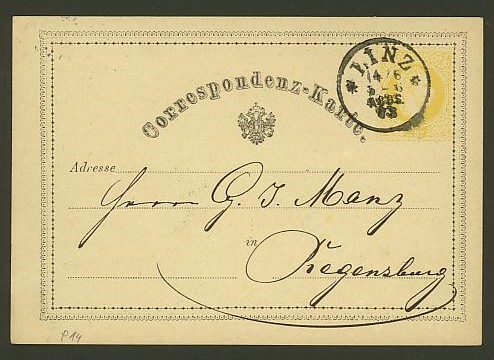 * LINZ *
14/6
73
Correspondenz-Karte.
Adresse
Herrn G. J. Manz
in
Regensburg
P14